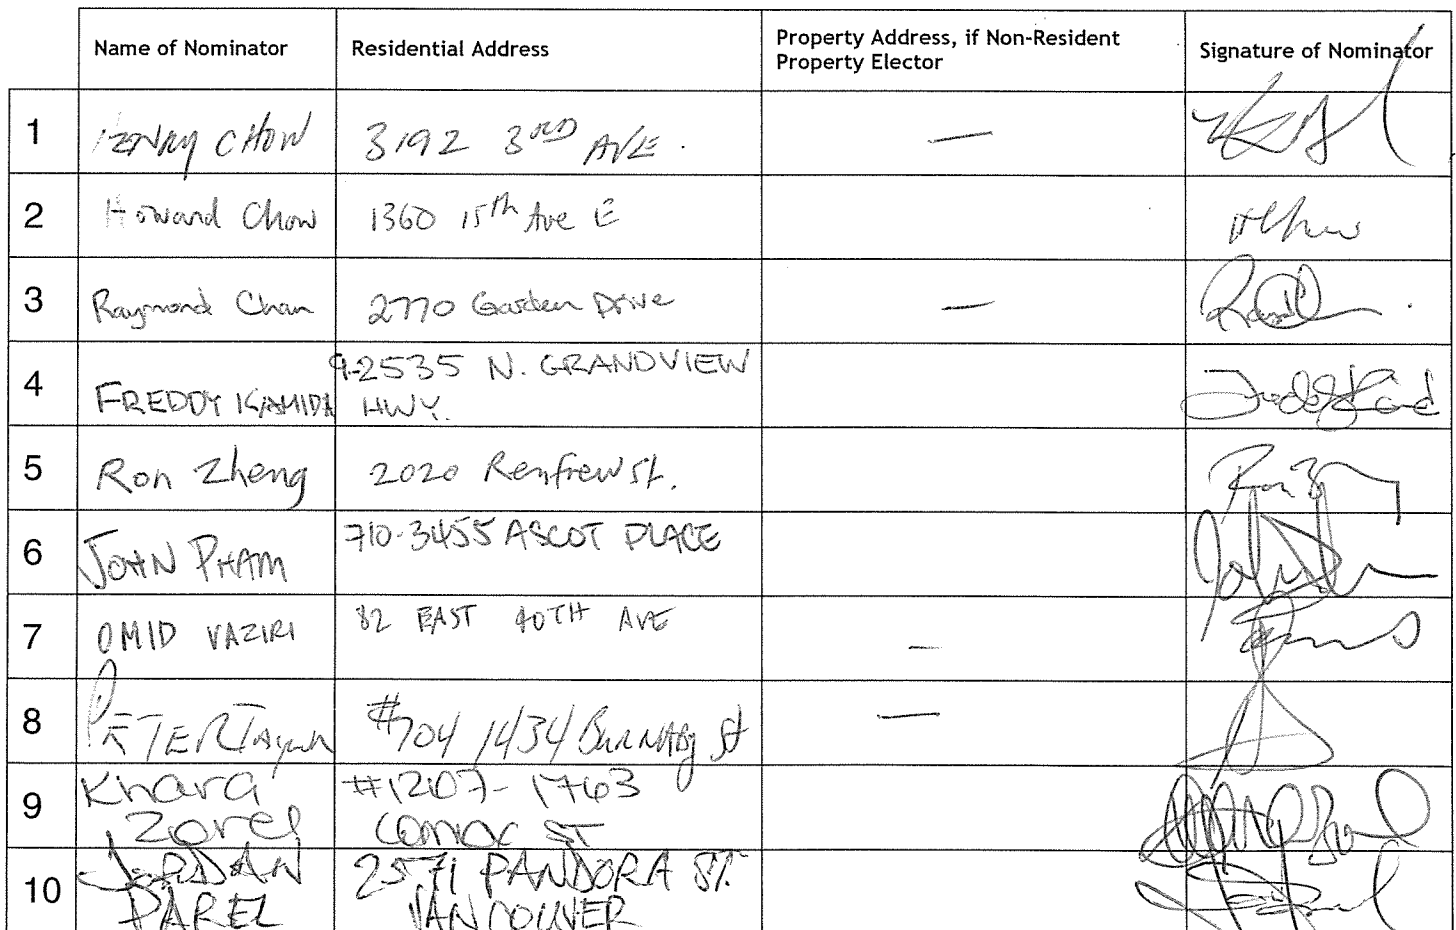 Name of Nominator Residential Address Property Address, if Non-Resident Property Elector Signature of Nominator
1 HENRY CHOW 3192 3RD AVE. —
2 Howard Chow 1360 15th Ave E
3 Raymond Chan 2770 Garden Drive —
4 FREDDY 9-2535 N. GRANDVIEW
HWY.
5 Ron Zheng 2020 Renfrew St.
6 JOHN PHAM 710-3455 ASCOT PLACE
7 OMID VAZIRI 82 EAST 40TH AVE —
8 PETER #704 1434 Burnaby St —
9 Khara #1207-1763
Zorel comox ST
10 JORDAN 2571 PANDORA ST.
PAREL VANCOUVER